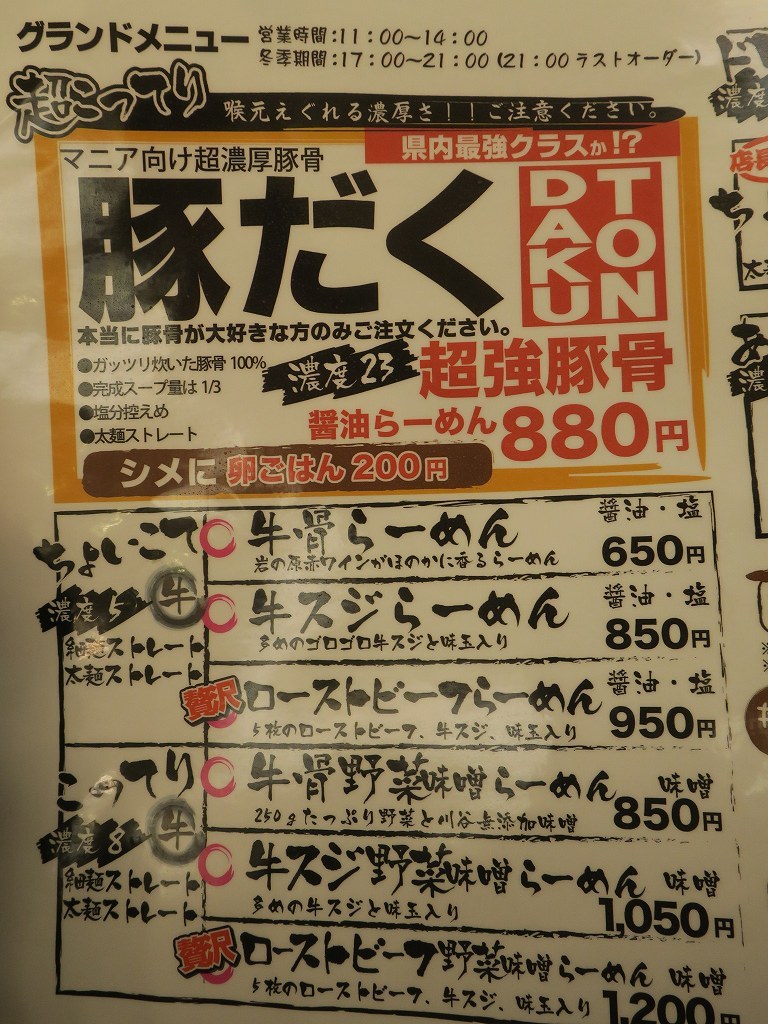 グランドメニュー
営業時間:11:00〜14:00
冬季期間:17:00〜21:00 (21:00 ラストオーダー)
超こってり
喉元えぐれる濃厚さ!!ご注意ください。
マニア向け超濃厚豚骨
県内最強クラスか!?
豚だく
TON
DAKU
本当に豚骨が大好きな方のみご注文ください。
●ガッツリ炊いた豚骨 100%
●完成スープ量は 1/3
●塩分控えめ
●太麺ストレート
濃度23
超強豚骨
醤油らーめん 880円
シメに 卵ごはん 200円
ちょいこて
濃度5
牛
細麺ストレート
太麺ストレート
牛骨らーめん
醤油・塩
岩の原赤ワインがほのかに香るらーめん
650円
牛スジらーめん
醤油・塩
多めのゴロゴロ牛スジと味玉入り
850円
贅沢
ローストビーフらーめん
醤油・塩
5枚のローストビーフ、牛スジ、味玉入り
950円
こってり
濃度8
牛
細麺ストレート
太麺ストレート
牛骨野菜味噌らーめん
味噌
250gたっぷり野菜と川谷無添加味噌
850円
牛スジ野菜味噌らーめん
味噌
多めの牛スジと味玉入り
1,050円
贅沢
ローストビーフ野菜味噌らーめん
味噌
5枚のローストビーフ、牛スジ、味玉入り
1,200円
濃度
店長
太麺